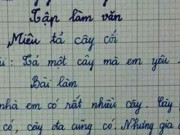 Tập làm văn
Miêu tả cây cối
: Tả một cây mà em yêu
Bài làm
nhà em có rất nhiều cây. Cây
có, cây đa cũng có. Nhưng gia